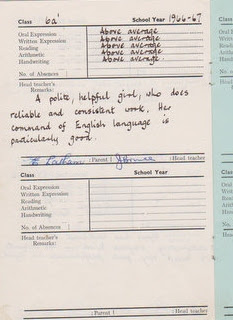 Class 6a' School Year 1966-67
Oral Expression Above average
Written Expression Above average
Reading Above average
Arithmetic Above average
Handwriting Above average
No. of Absences
Head teacher's
Remarks:
A polite, helpful girl, who does
reliable and consistent work. Her
command of English language is
particularly good.
Latham :Parent :Head teacher
Class School Year
Oral Expression
Written Expression
Reading
Arithmetic
Handwriting
No. of Absences
Head teacher's
Remarks:
:Parent :Head teacher